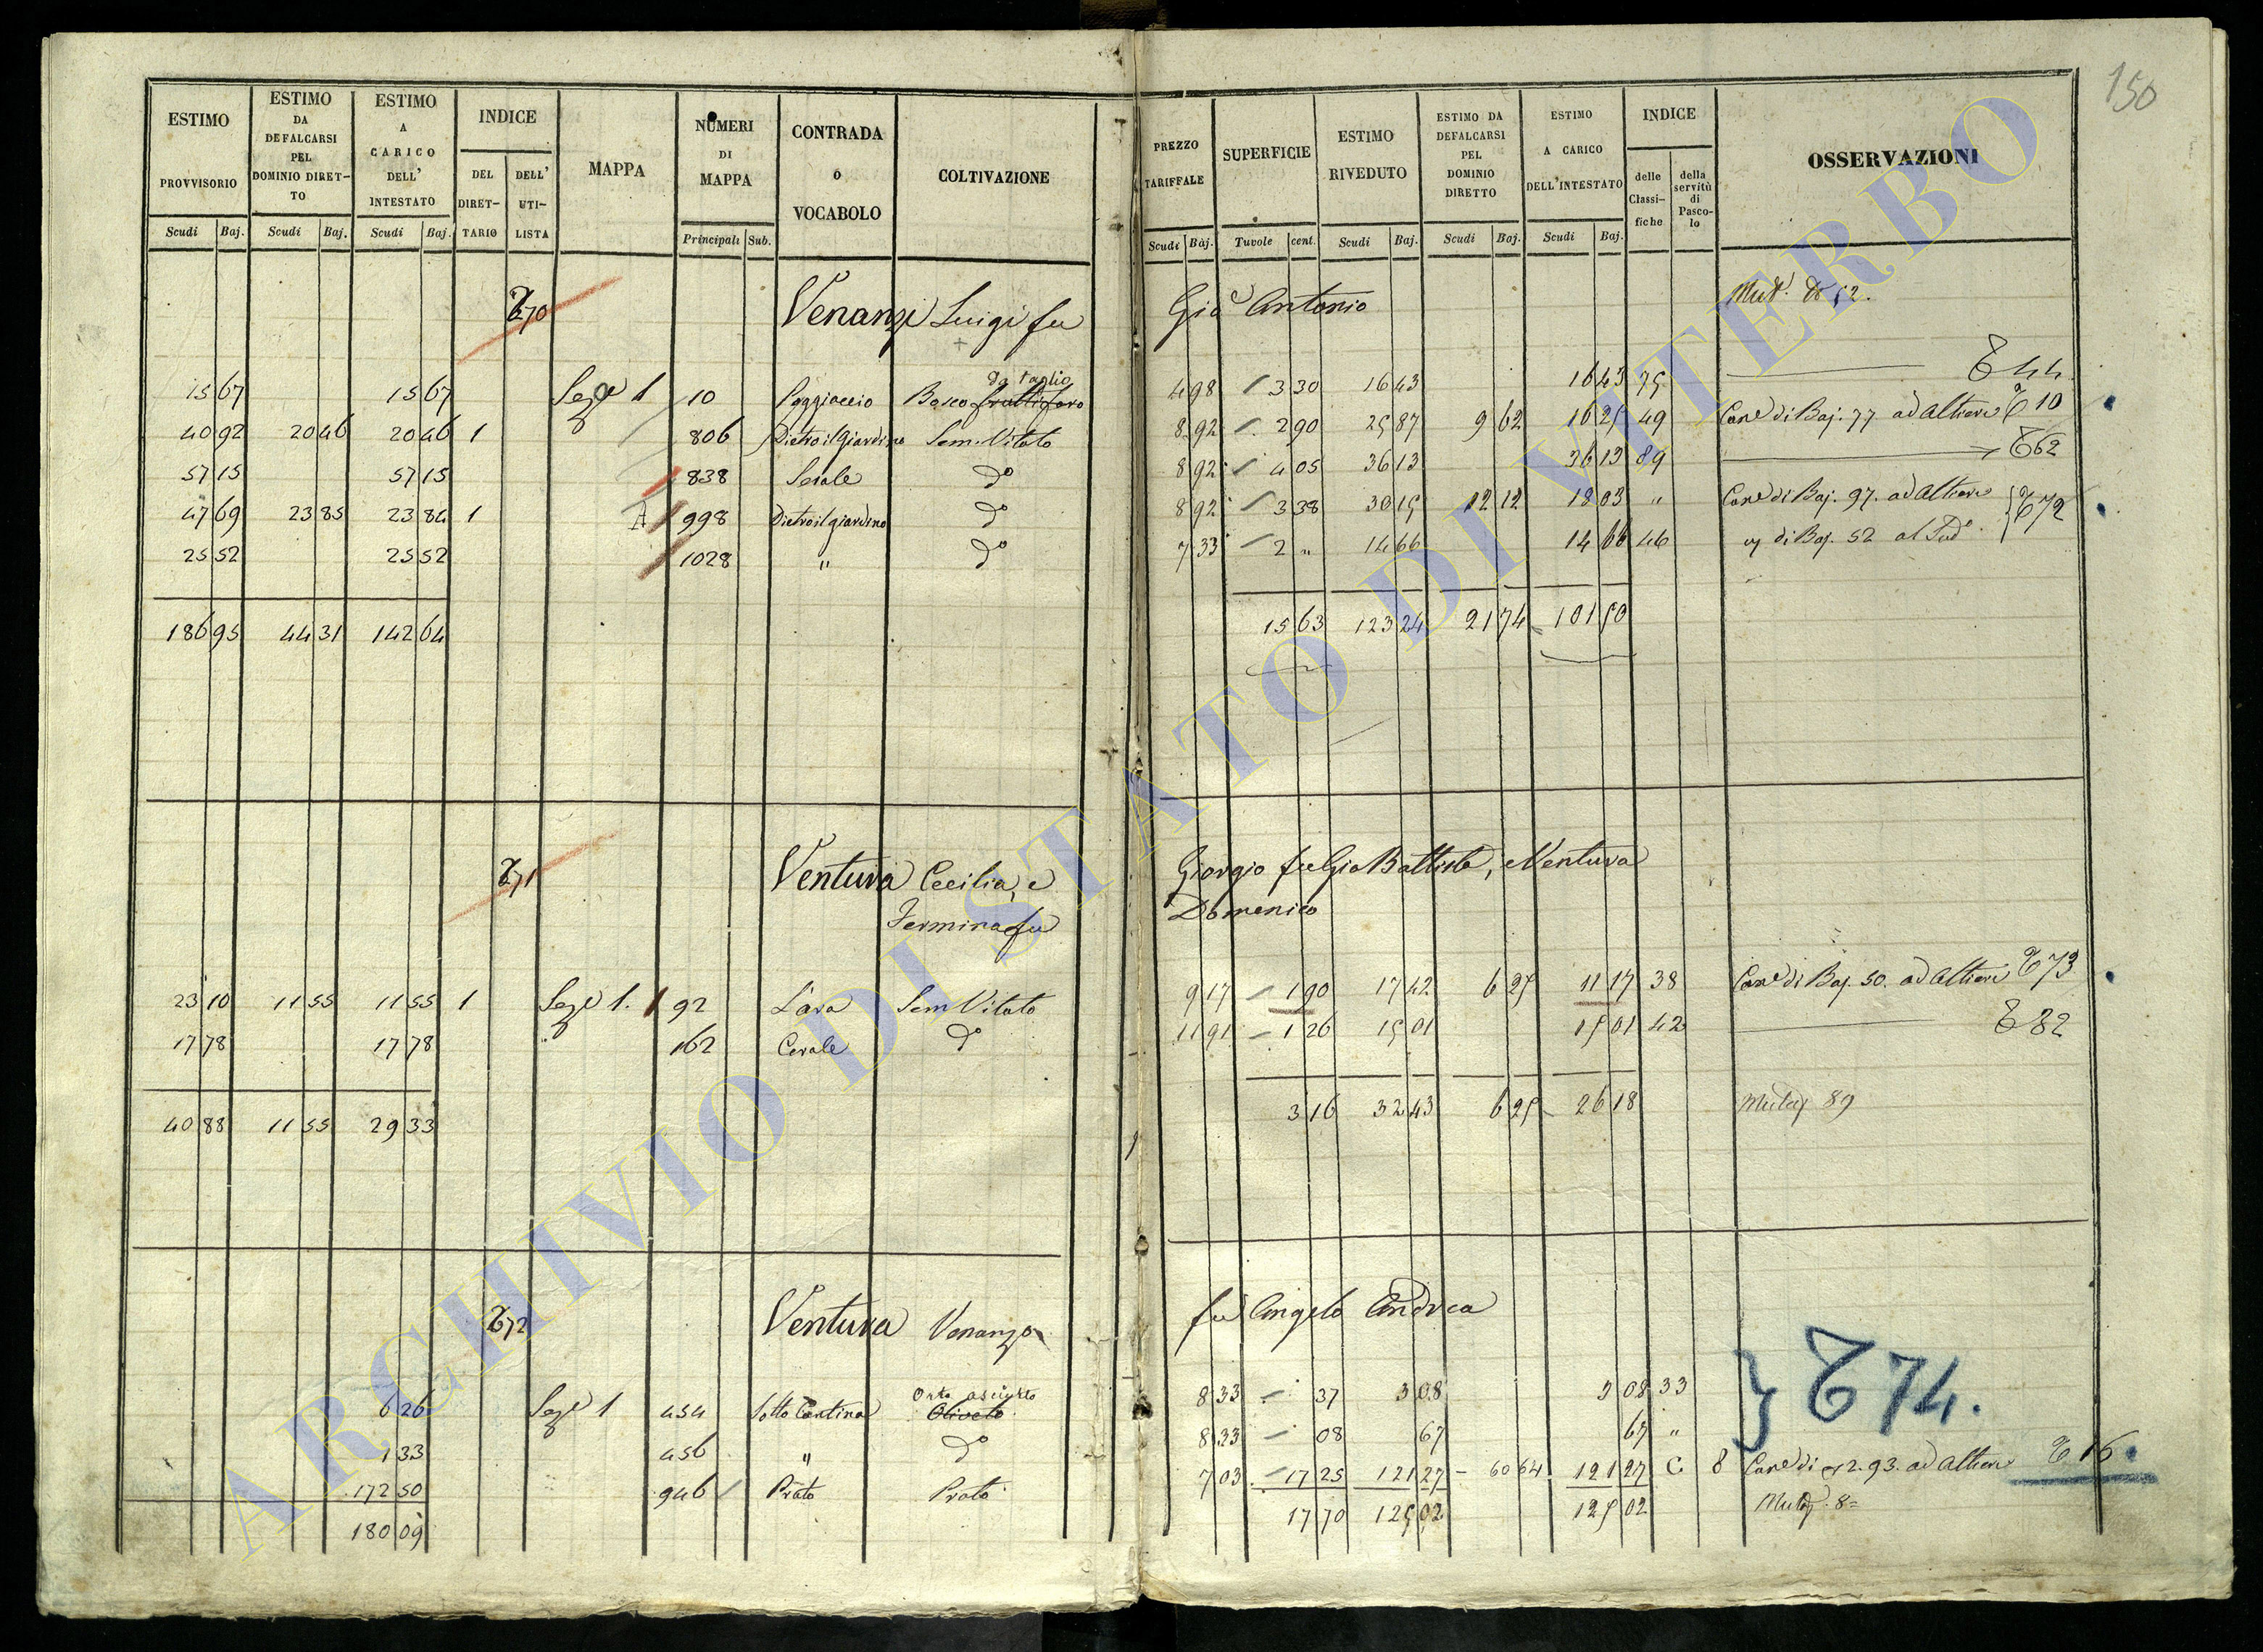 150
ESTIMO PROVVISORIO Scudi Baj.
ESTIMO DA DEFALCARSI PEL DOMINIO DIRET-TO Scudi Baj.
ESTIMO A CARICO DELL' INTESTATO Scudi Baj.
INDICE DEL DIRET-TARIO DELL' UTI-LISTA
MAPPA
NUMERI DI MAPPA Principali Sub.
CONTRADA O VOCABOLO
COLTIVAZIONE
PREZZO TARIFFALE Scudi Baj.
SUPERFICIE Tavole cent.
ESTIMO RIVEDUTO Scudi Baj.
ESTIMO DA DEFALCARSI PEL DOMINIO DIRETTO Scudi Baj.
ESTIMO A CARICO DELL'INTESTATO Scudi Baj.
INDICE delle Classi-fiche della servitù di Pasco-lo
OSSERVAZIONI
670 Venanzi Luigi fu Gio Antonio
da taglio
15 67 15 67 Sez 1 10 Poggiaccio Bosco fruttifero 4 98 3 30 16 43 16 43 75 44
40 92 20 46 20 46 1 806 Dietro il Giardino Sem. Vitato 8 92 2 90 25 87 9 62 16 25 49 Cane di Baj. 77 ad Altieri 10
57 15 57 15 838 Serale do 8 92 4 05 36 13 36 13 89 62
47 69 23 85 23 84 1 A 998 Dietro il giardino do 8 92 3 38 30 15 12 12 18 03 " Cane di Baj. 97. ad Altieri 72
25 52 25 52 1028 " do 7 33 2 " 14 66 14 66 46 di Baj. 52 al Sudo
186 95 44 31 142 64 15 63 123 24 21 74 101 50
671 Ventura Cecilia, e Giorgio fu Gio Battista, e Ventura
Fermina fu Domenico
23 10 11 55 11 55 1 Sez 1. 92 Lara Sem Vitato 9 17 1 90 17 42 6 25 11 17 38 Cane di Baj. 50. ad Altieri 73
17 78 17 78 162 Cerale do 11 91 1 26 15 01 15 01 42 82
40 88 11 55 29 33 3 16 32 43 6 25 26 18 89
672 Ventura Venanzo fu Angelo Andrea
Orto asciutto
6 26 Sez 1 454 Sotto Cantina Oliveto 8 33 37 3 08 3 08 33 74.
1 33 456 " do 8 33 08 67 67 "
172 50 946 Prato Prato 7 03 17 25 121 27 60 64 121 27 C 8 Cane di 2.93. ad Altieri 16
180 09 17 70 125 02 125 02
ARCHIVIO DI STATO DI VITERBO